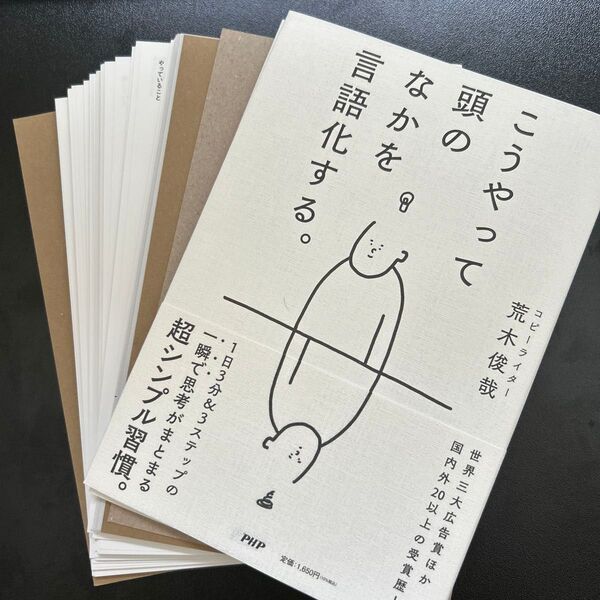 こうやって
頭の
なかを
言語化する。
コピーライター
荒木俊哉
世界三大広告賞ほか
国内外20以上の受賞歴!
1日3分&3ステップの
一瞬で思考がまとまる
超シンプル習慣。
PHP
定価:1,650円(10%税込)
やっていること